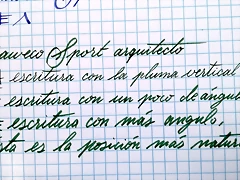 aweco Sport arquitecto
escritura con la pluma vertical
escritura con un poco de ángul
escritura con más angulo.
sta es la posición más natur